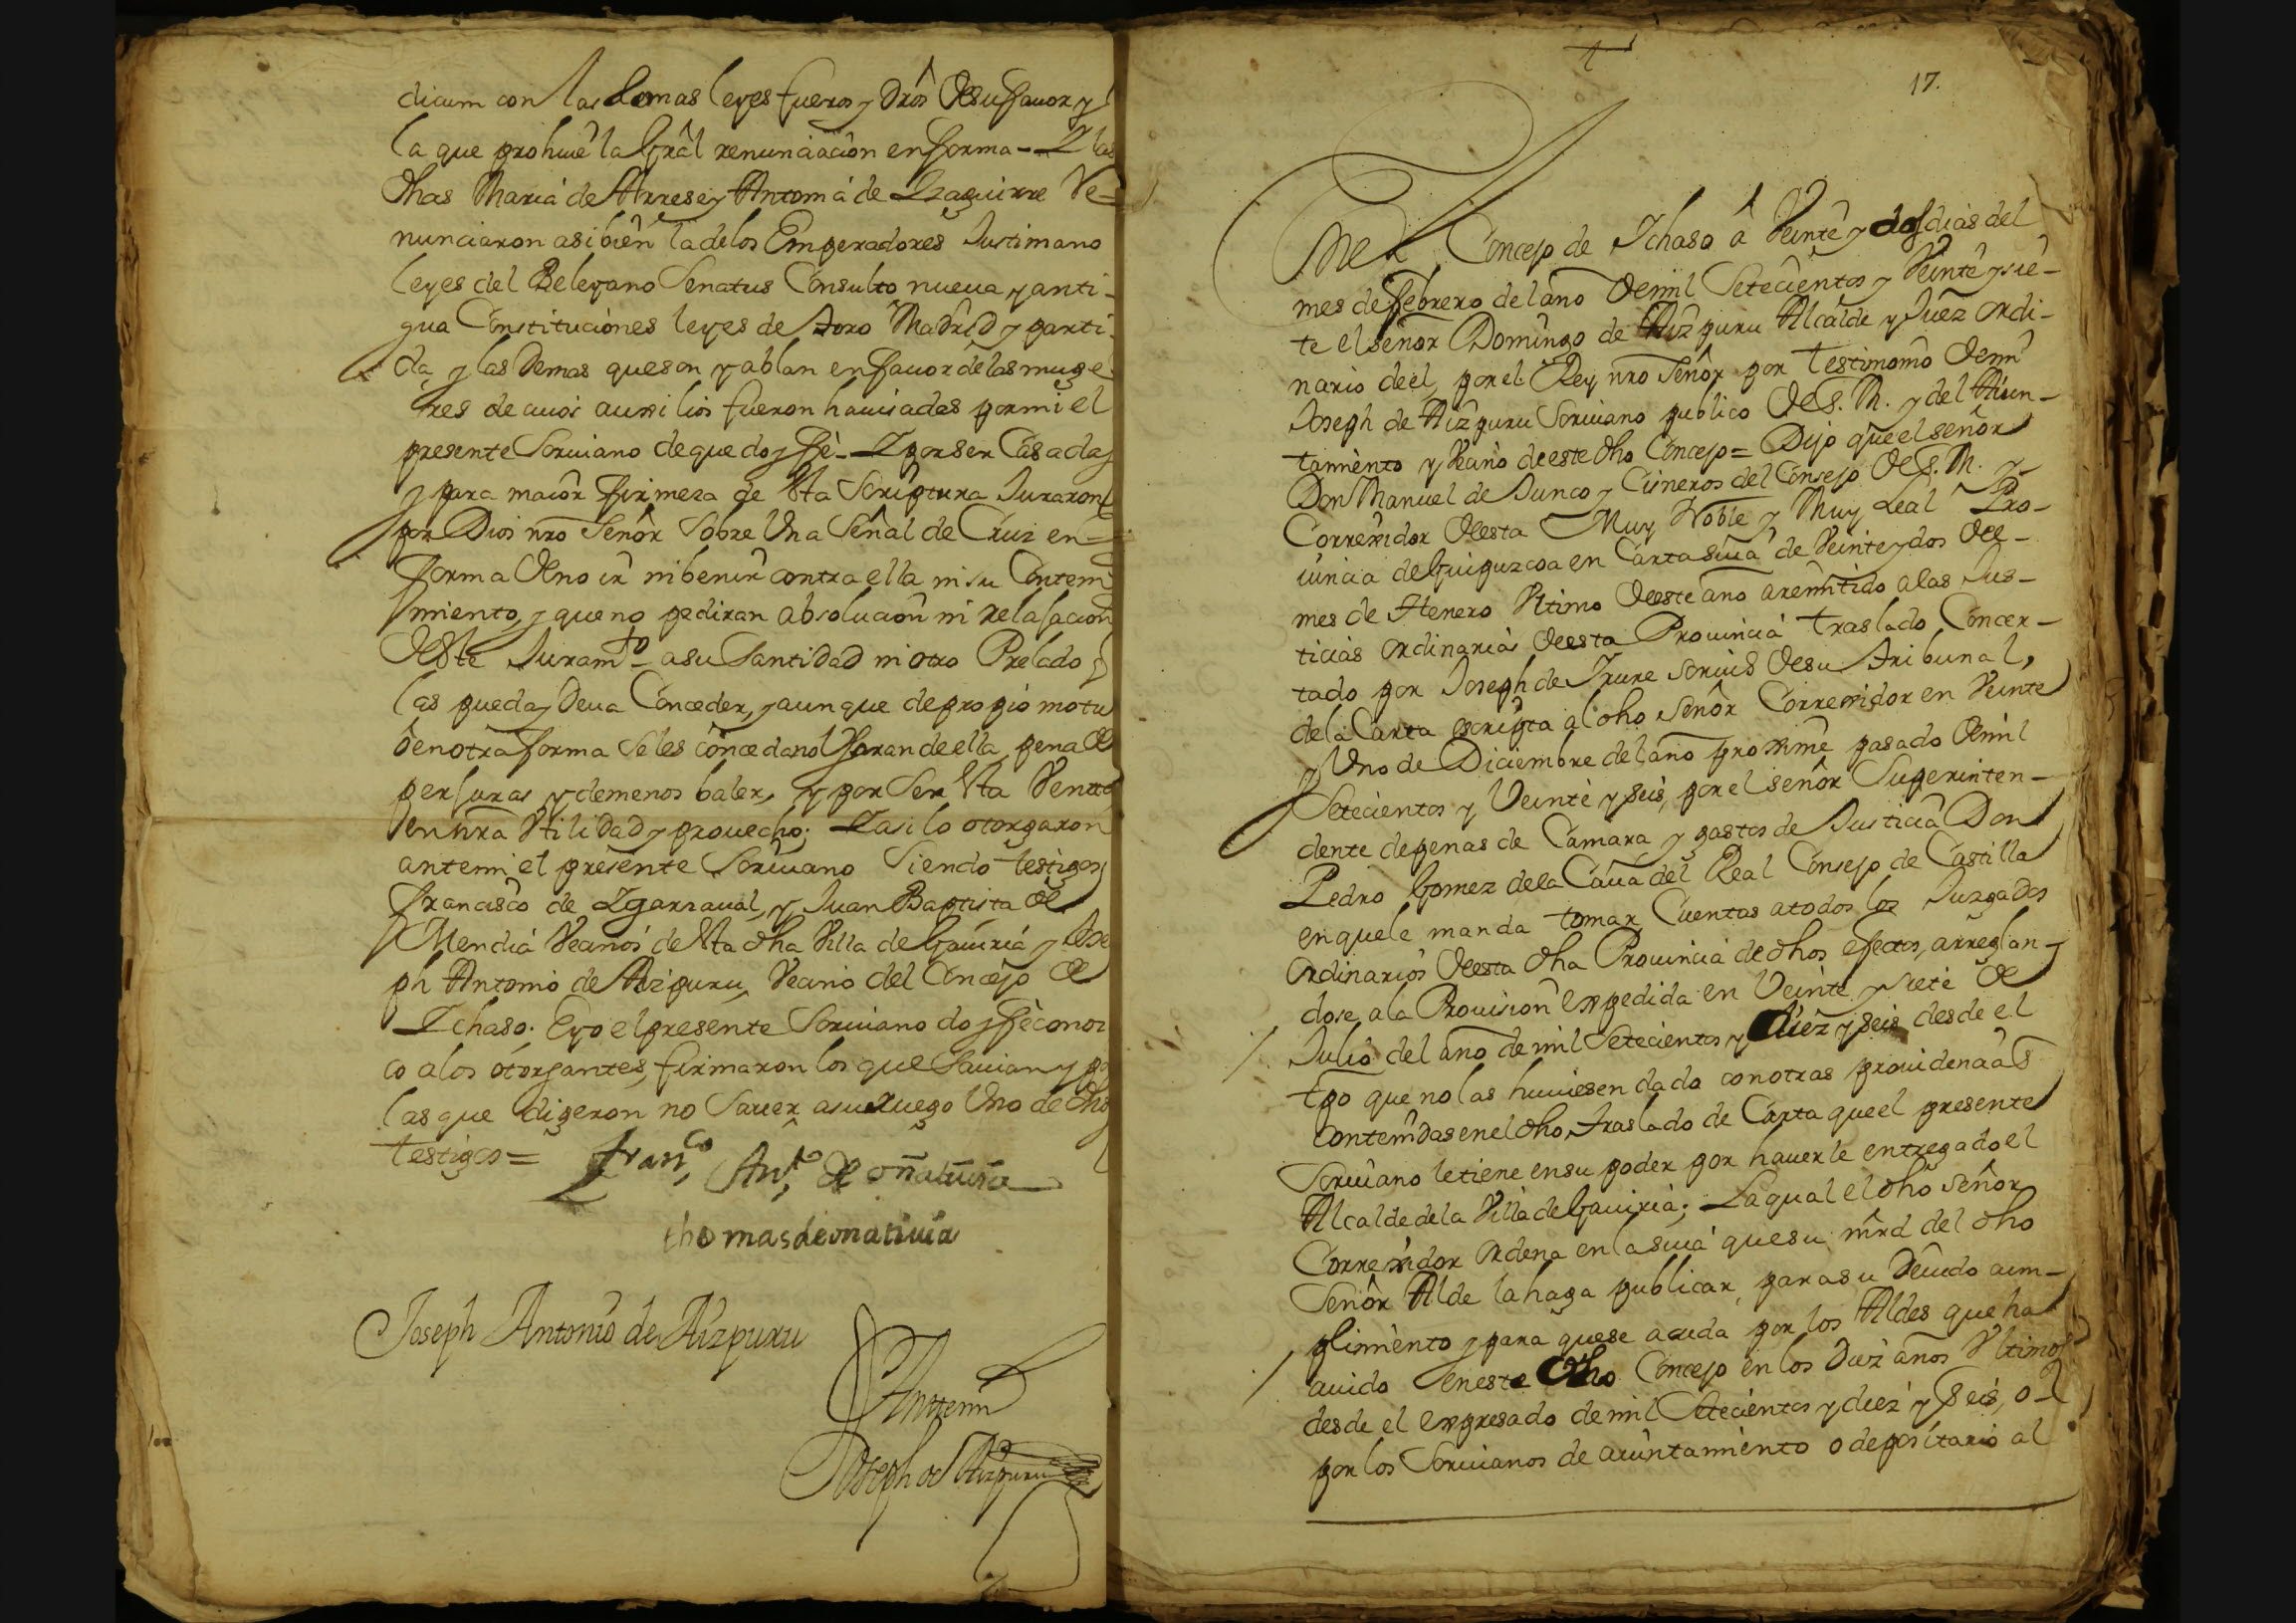 dicum con las demas leyes fueros y drôs de su fauor y
la que prohiue la Grâl renunciacion en forma - Y las
dhas Maria de Arrese y Antonia de Yzaguirre Re=
nunciaron asi bien la de los Emperadores Justiniano
leyes del Beleyano Senatus Consulto nueua y anti-
gua Constituciones leyes de Toro Madrid y parti-
da y las demas que son y ablan en fauor de las muge
res de cuios auxilios fueron hauisadas por mi el
presente Scriuano de que doy fè - Y por ser Casadas
y para maior firmeza de esta Scriptura Juraron
por Dios nro Señor sobre Una Señal de Cruz en
forma de no ir ni benir contra ella ni su Conteni
miento, y que no pediran absolucion ni relajacion
deste Juramto a su Santidad ni otro Prelado q
las pueda y deua Conceder, y aunque de propio motu
ô en otra forma se les conceda no Usaran de ella, pena de
perjuras y de menos baler, y por ser esta Venta
en nra Utilidad y prouecho; Y asi lo otorgaron
ante mi el presente Scriuano siendo testigos
Francisco de Ygarzaual, y Juan Baptista de
Mendia Vecinos de esta dha Villa de Gauiria y Jose
ph Antonio de Aizpuru, Vecino del Concejo de
Ychaso. E yo el presente Scriuano doy fè conoz
co a los otorgantes, firmaron los que Sauian y por
las que digeron no Sauer a su ruego Uno de dhos
testigos =
Franco, Anto de oñatiuia
thomas de onatiuia
Joseph Antonio de Aizpuru
Ante mi
Joseph de Aizpuru
17.
En el Concejo de Ichaso â Veinte y dos dias del
mes de febrero del año de mil Setecientos y Veinte y sie-
te el señor Domingo de Aizpuru Alcalde y Juez ordi-
nario de êl, por el Rey nro señor por testimonio de mi
Joseph de Aizpuru Scriuano publico de S. M. y del Aiun-
tamiento y Vecino de este dho Concejo = Dijo que el señor
Don Manuel de Junco y Cisneros del Consejo de S. M. y
Corregidor desta Muy Noble y Muy Leal Pro-
uincia de Guipuzcoa en Carta suia de Veinte y dos del
mes de Henero Ultimo deeste año a remitido a las Jus-
ticias ordinarias deesta Prouincia traslado Concer-
tado por Joseph de Irure scriuo de su Tribunal,
de la Carta escripta al dho señor Corregidor en Veinte
y Uno de Diciembre del año proxime pasado de mil
Setecientos y Veinte y seis, por el señor Superinten-
dente de penas de Camara y gastos de Justicia Don
Pedro Gomez de la Caua del Real Consejo de Castilla
en que le manda tomar Cuentas a todos los Juzgados
ordinarios deesta dha Prouincia de dhos efectos, arreglan-
dose, a la Prouision expedida en Veinte y siete de
Julio del año de mil Setecientos y diez y seis desde el
tpo que no las huuiesen dado con otras prouidencias
Contenidas en el dho, traslado de Carta que el presente
Scriuano le tiene en su poder por hauerle entregado el
Alcalde de la Villa de Gauiria; La qual el dho señor
Corregidor ordena en la suia que su mrd del dho
señor Alde la haga publicar, para su deuido cum-
plimiento y para que se acuda por los Aldes que ha
auido en este dho Concejo en los Diez años Ultimos
desde el expresado de mil Setecientos y diez y seis, o
por los Scriuanos de aiuntamiento o depositario al